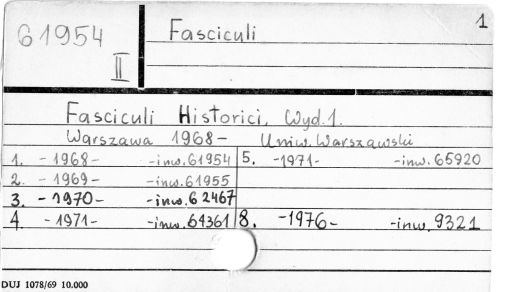 1
61954
II
Fasciculi
Fasciculi Historici, Wyd.1.
Warszawa 1968- Uniw. Warszawski
1. -1968- -inw.61954 5. -1971- -inw. 65920
2. -1969- -inw.61955
3. -1970- -inw.62467
4. -1971- -inw.64361 8. -1976- -inw. 9321
DUJ 1078/69 10.000